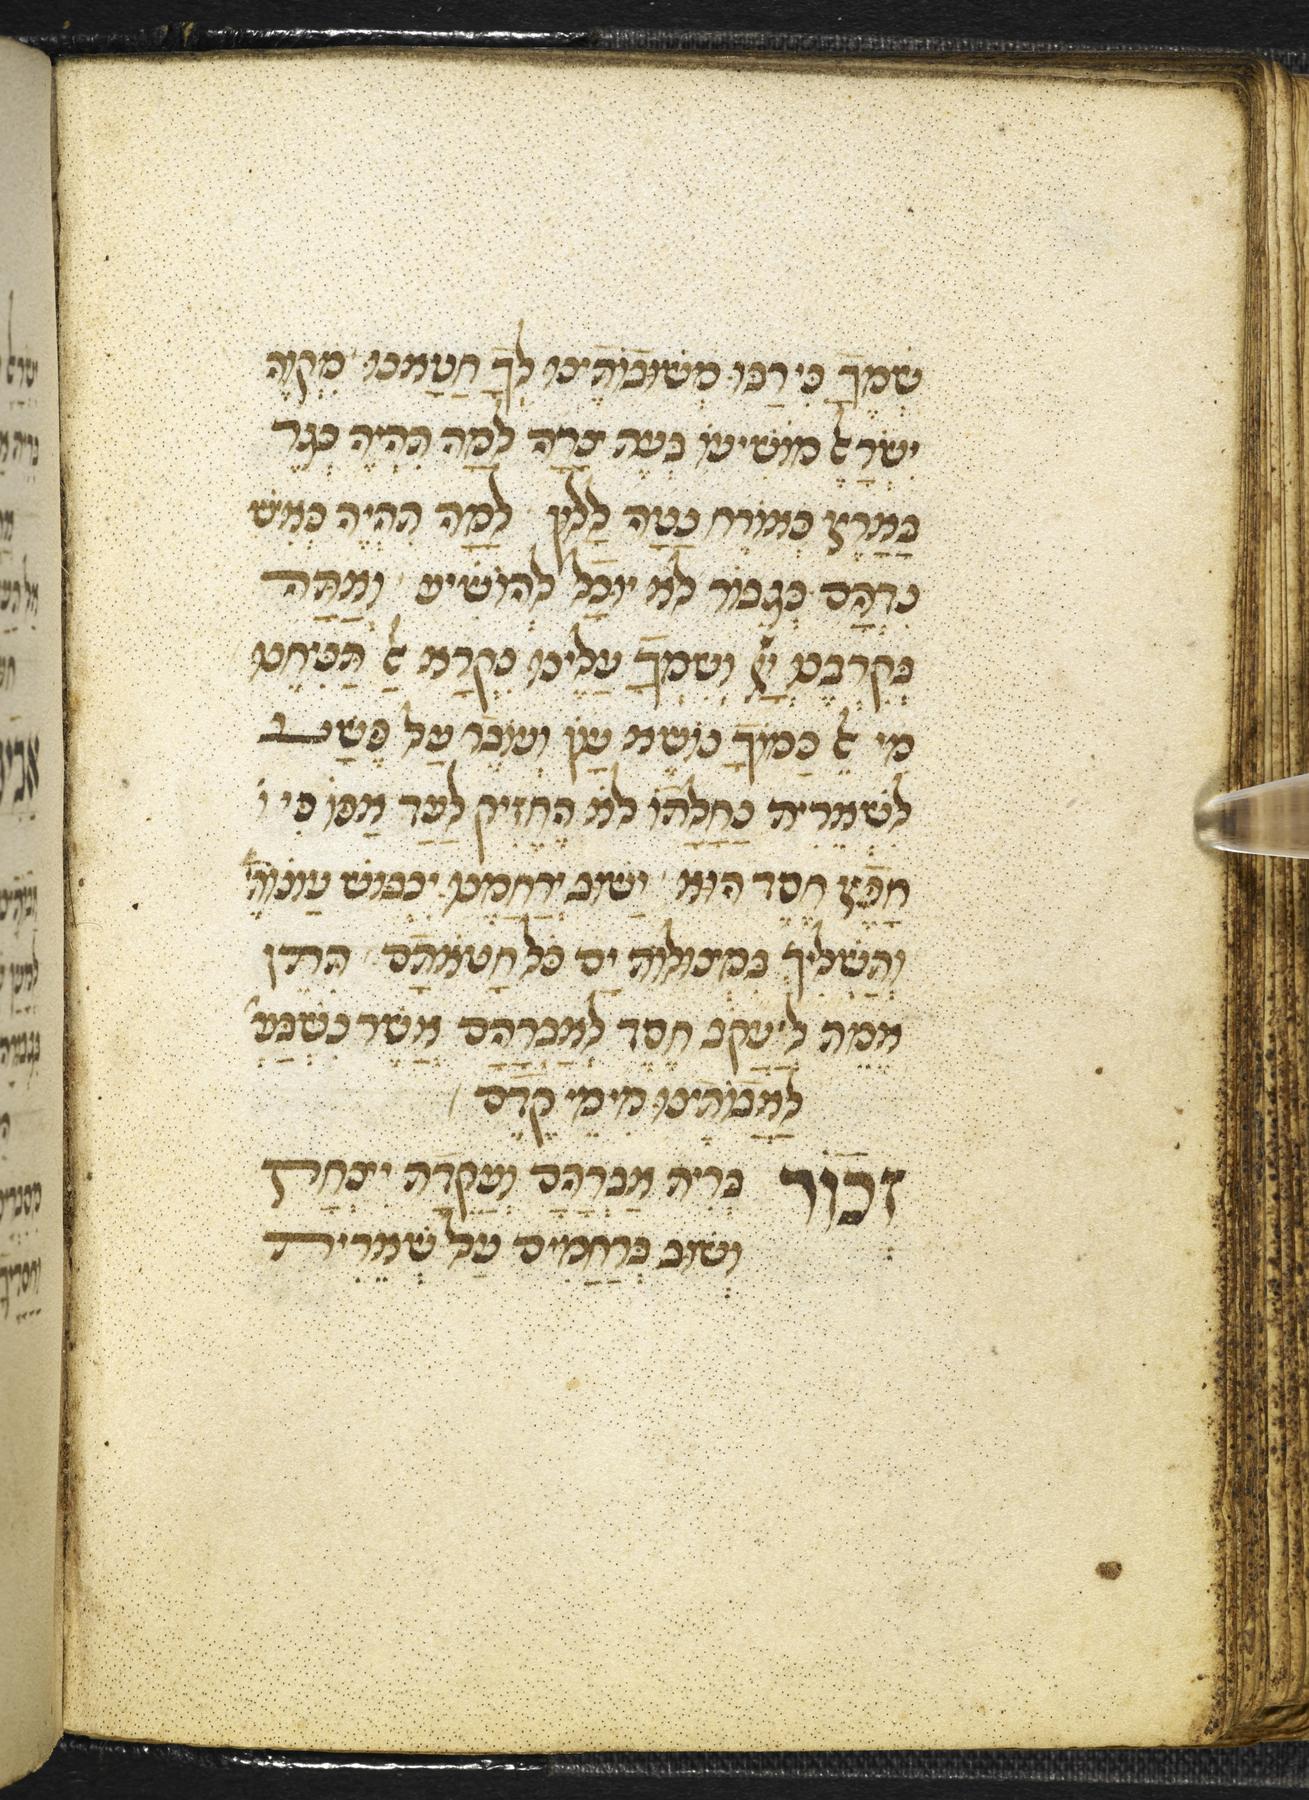 שְׁמֶךָ כִּי רַבּוּ מְשׁוּבוֹתֵינוּ לְךָ חָטָאנוּ׳ מִקְוֵה
יִשְׂרָאֵל מוֹשִׁיעוֹ בְּעֵת צָרָה לָמָּה תִהְיֶה כְּגֵר
בָּאָרֶץ כְּאוֹרֵחַ נָטָה לָלוּן לָמָּה תִהְיֶה כְּאִישׁ
נִדְהָם כְּגִבּוֹר לֹא יוּכַל לְהוֹשִׁיעַ׳ וְאַתָּה
בְּקִרְבֵּנוּ יְיָ וְשִׁמְךָ עָלֵינוּ נִקְרָא אַל תַּנִּיחֵנוּ
מִי אֵל כָּמוֹךָ נוֹשֵׂא עָוֹן וְעוֹבֵר עַל פֶּשַׁע
לִשְׁאֵרִית נַחֲלָתוֹ לֹא הֶחֱזִיק לָעַד אַפּוֹ כִּי
חָפֵץ חֶסֶד הוּא׳ יָשׁוּב יְרַחֲמֵנוּ יִכְבּוֹשׁ עֲוֹנוֹתֵ׳
וְתַשְׁלִיךְ בִּמְצוּלוֹת יָם כָּל חַטֹּאתָם׳ תִּתֵּן
אֱמֶת לְיַעֲקֹב חֶסֶד לְאַבְרָהָם אֲשֶׁר נִשְׁבַּעְ׳
לַאֲבוֹתֵינוּ מִימֵי קֶדֶם
זְכוֹר בְּרִית אַבְרָהָם וַעֲקֵדַת יִצְחָק
וְשׁוּב בְּרַחֲמִים עַל שְׁאֵרִית